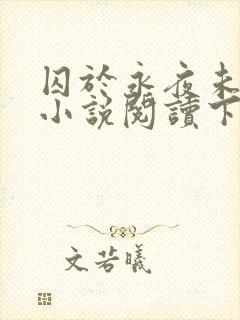 囚於永夜未
小說閱讀下
文若曦